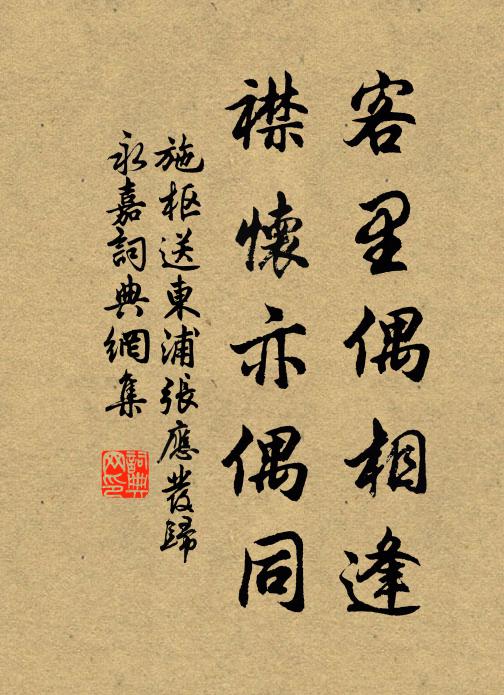 客里偶相逢
襟懷亦偶同
施枢送東浦張應發歸
永嘉詞典網集
詞典网印